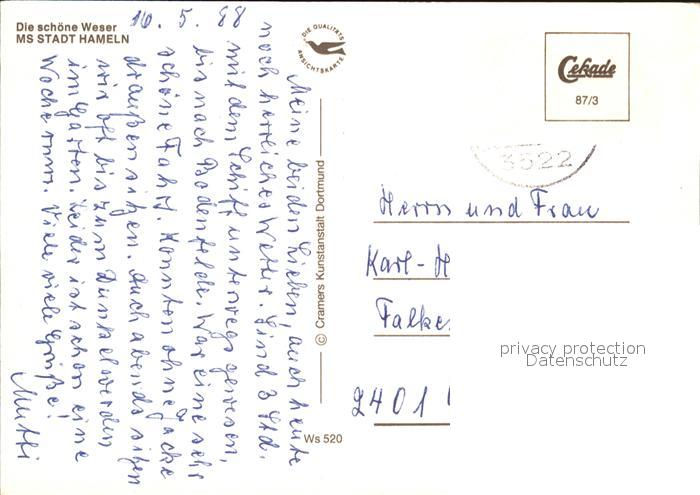 Die schöne Weser
MS STADT HAMELN
16. 5. 88
Meine beiden Lieben, auch heute
noch herrliches Wetter. Sind 3 Std.
mit dem Schiff unterwegs gewesen,
bis nach Bodenfelde. War eine sehr
schöne Fahrt. Konnten ohne Jacke
draußen sitzen. Auch abends sitzen
wir oft bis zum Dunkelwerden
im Garten. Leider ist schon eine
Woche rum. Viele viele Grüße!
Mutti
DIE QUALITÄTS
ANSICHTSKARTE
© Cramers Kunstanstalt Dortmund
Ws 520
Cekade
87/3
3522
Herrn und Frau
Karl-H
Falke
2401
privacy protection
Datenschutz